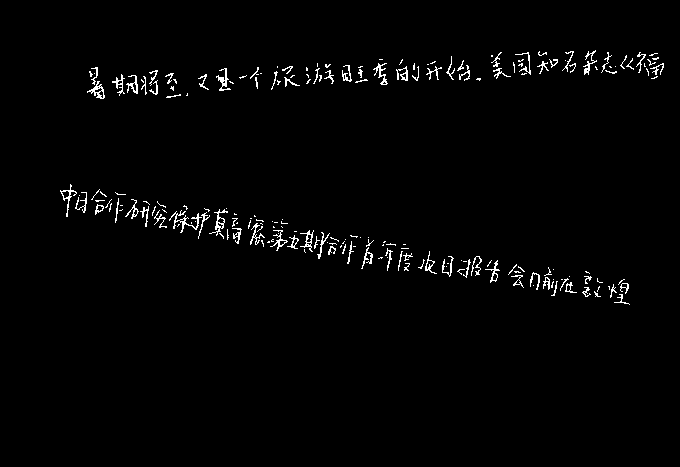 暑期将至,又是一个旅游旺季的开始。美国知名杂志《福
中日合作研究保护莫高窟第五期合作首年度项目报告会日前在敦煌